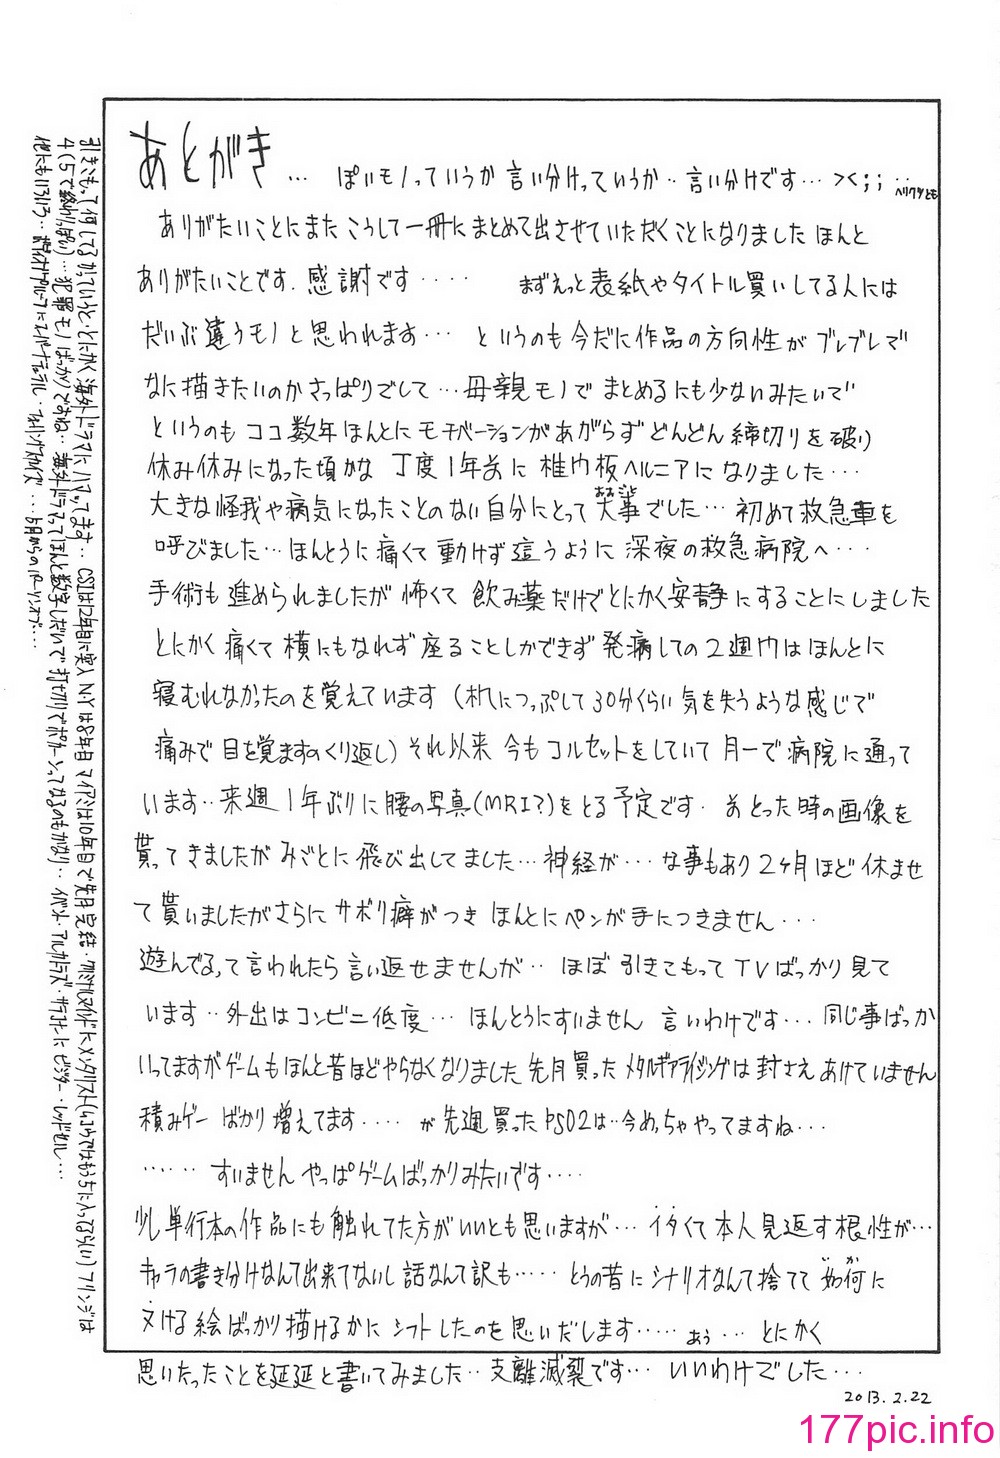 あとがき … ぽいモノっていうか 言い分けっていうか‥ 言い分けです… ><;; ‥
ヘリクツとも
ありがたいことにまた こうして一冊に まとめて出させていただくことになりました ほんと
ありがたいことです. 感謝です ‥‥ まずえっと表紙やタイトル買いしてる人には
だいぶ違うモノと思われます… というのも 今だに作品の方向性が ブレブレで
なに描きたいのか さっぱりでして … 母親モノで まとめるにも少ないみたいで
というのも ココ数年ほんとに モチベーションがあがらず どんどん 締切りを破り
休み休みになった頃かな 丁度1年前に 椎間板ヘルニアに なりました…
大きな怪我や病気になったことのない自分にとって 大事でした… 初めて救急車を
呼びました… ほんとうに痛くて動けず 這うように 深夜の救急病院へ…
手術も進められましたが 怖くて 飲み薬だけでとにかく安静にすることにしました
とにかく痛くて横にもなれず 座ることしかできず 発病しての2週間はほんとに
寝むれなかったのを覚えています (机につっぷして30分くらい気を失うような感じで
痛みで目を覚ますのくり返し) それ以来 今もコルセットをしていて 月一で病院に通って
います‥ 来週1年ぶりに腰の写真(MRI?)をとる予定です. 前とった時の画像を
貰ってきましたが みごとに飛び出してました… 神経が… な事もあり2ヶ月ほど休ませ
て貰いましたがさらに サボり癖がつき ほんとにペンが手につきません…
遊んでるって言われたら 言い返せませんが‥ ほぼ 引きこもって TVばっかり見て
います‥ 外出はコンビニ低度… ほんとうにすいません 言いわけです… 同じ事ばっか
いってますがゲームもほんと昔ほどやらなくなりました 先月買った メタルギアライジングは封さえあけていません
積みゲー ばかり増えてます ‥‥ が 先週買ったPSO2は‥ 今めっちゃやってますね…
‥‥‥ すいません やっぱゲームばっかりみたいです‥‥
少し単行本の作品にも触れてた方がいいとも思いますが… イタくて本人見返す根性が…
キャラの書き分けなんて出来てないし 話なんて訳も‥‥‥ とうの昔に シナリオなんて捨てて 如何に
ヌける絵ばっかり描けるかに シフトしたのを思いだします‥‥‥ あぅ… とにかく
思いたったことを延延と書いてみました‥ 支離滅裂です… いいわけでした…
2013.2.22
引きこもって何してるかっていうと・とにかく海外ドラマにハマってます‥ CSIは12年目に突入 N.Yは8年目 マイアミは10年目で先月完結・クリミナルマインドに メンタリスト
犯罪モノばっかりですね‥ 海外ドラマってほんと数字しだいで打切りで
177pic.info